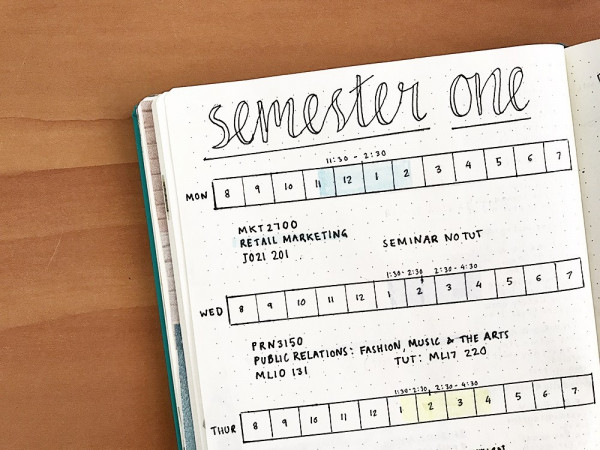 semester one
11:30 - 2:30
MON 8 9 10 11 12 1 2 3 4 5 6 7
MKT2700
RETAIL MARKETING
JO21 201
SEMINAR NO TUT
1:30-2:30 2:30-4:30
WED 8 9 10 11 12 1 2 3 4 5 6 7
PRN3150
PUBLIC RELATIONS: FASHION, MUSIC & THE ARTS
ML10 131 TUT: ML17 220
1:30-2:30 2:30-4:30
THUR 8 9 10 11 12 1 2 3 4 5 6 7